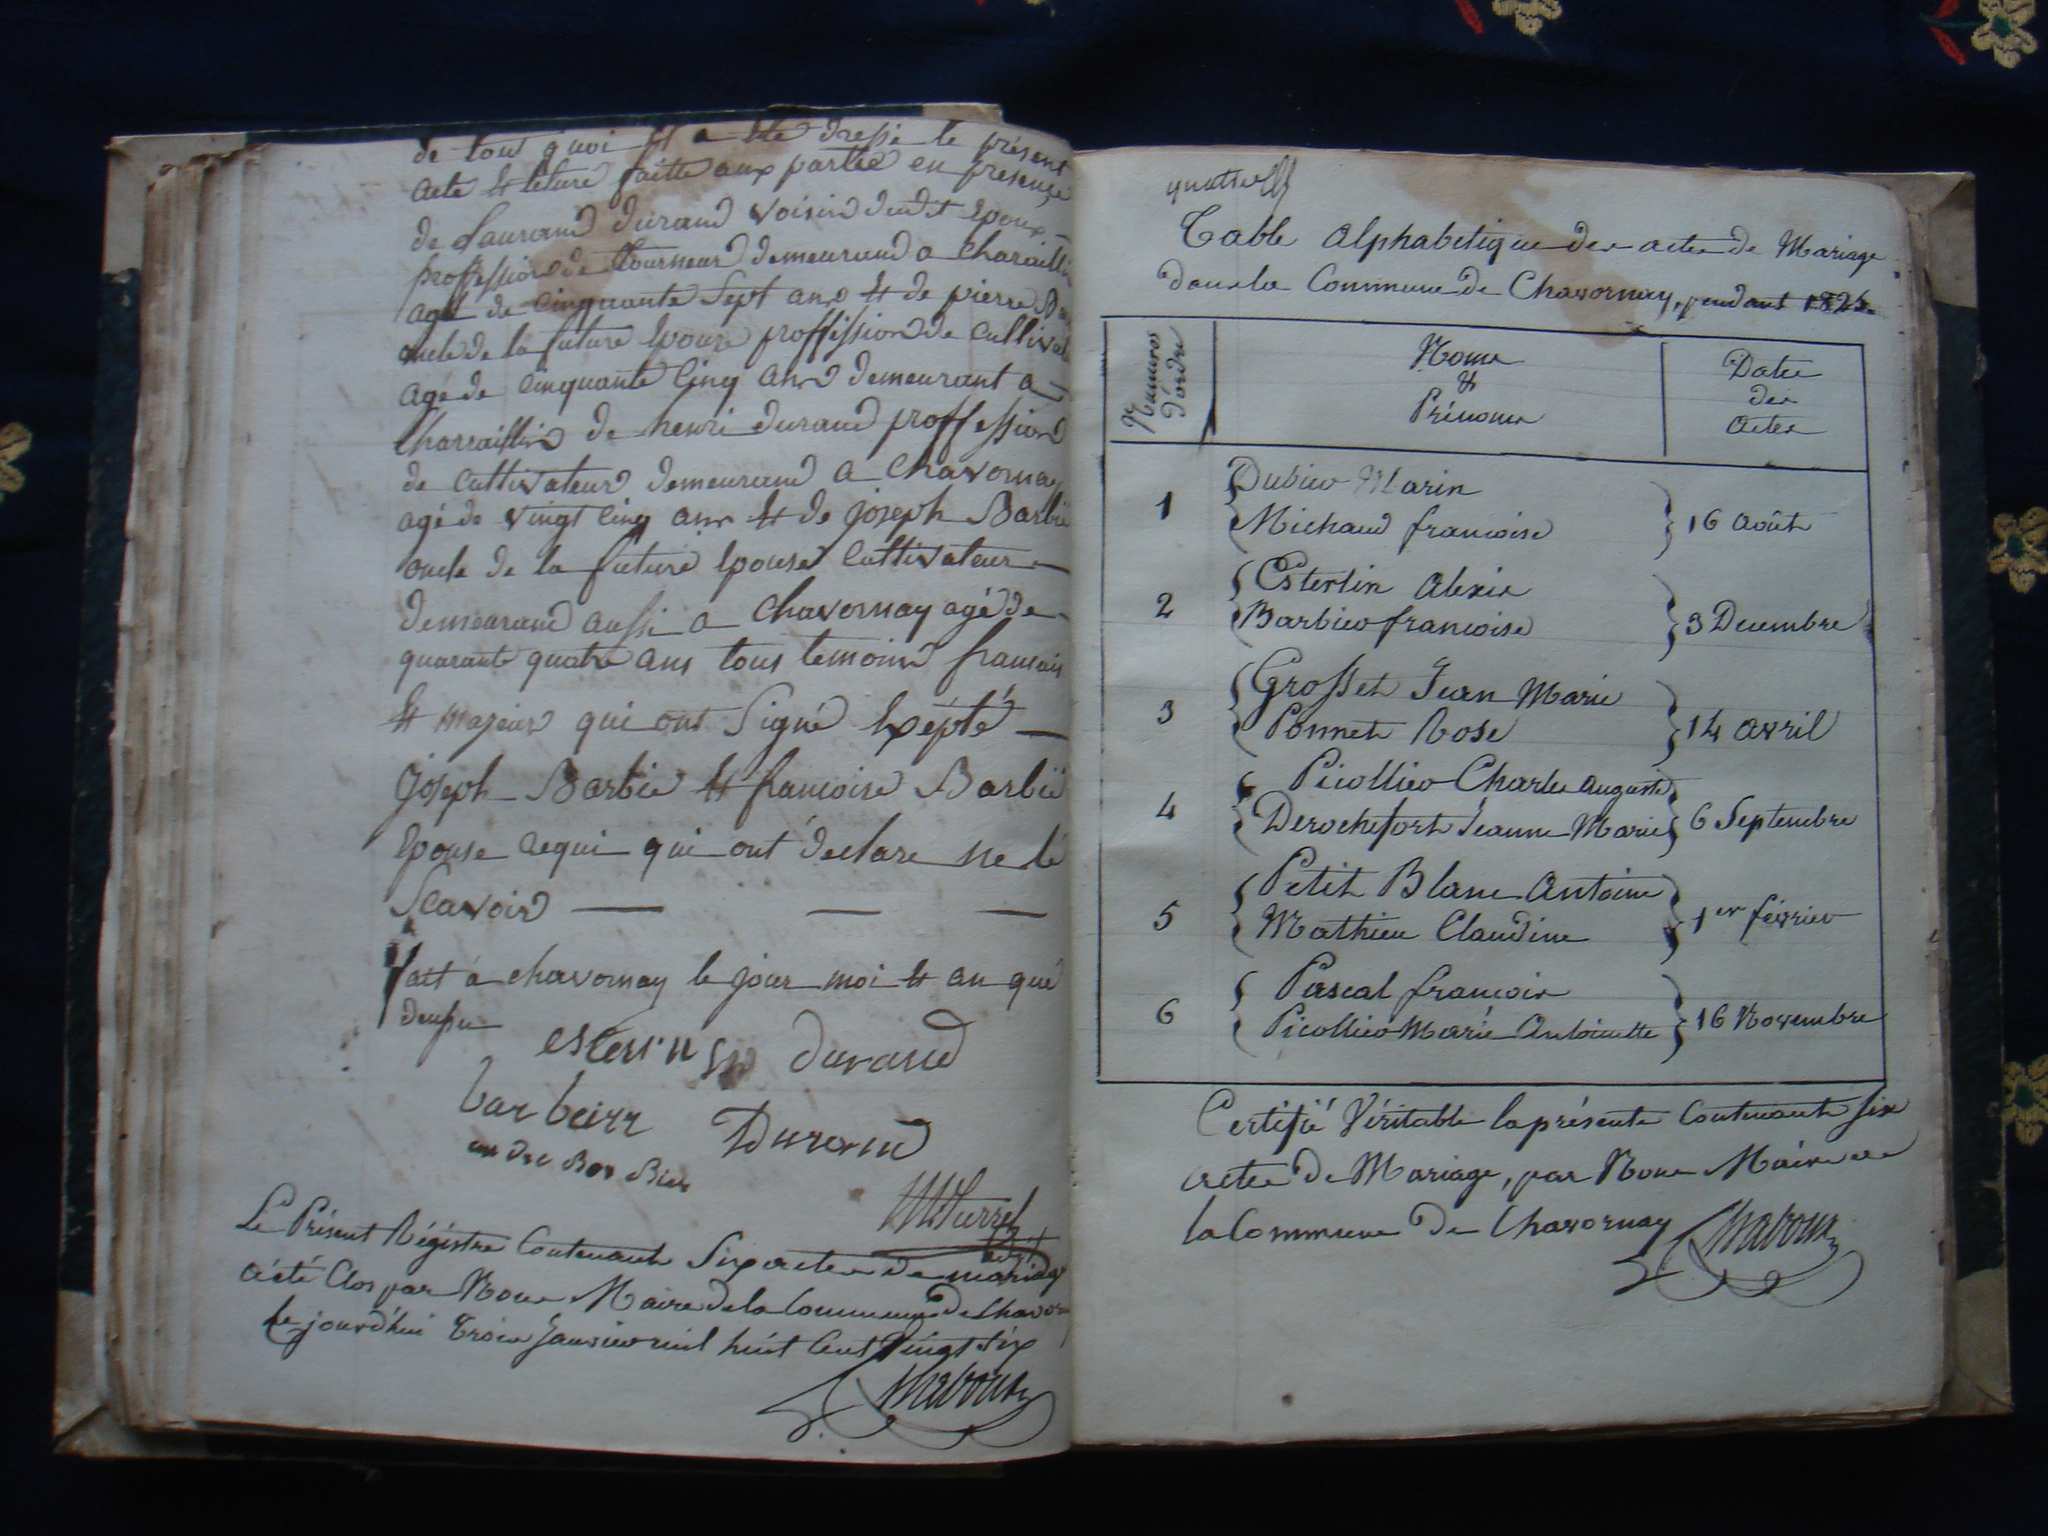 de tout quoi il a été dressé le présent
acte et leture faitte aux partie en présence
de Laurand durand voisin dudit Epoux
proffession de tourneur demeurand a Charaillin
agé de cinquante sept ans et de pierre
oncle de la future Epouse proffission de cultivat
agé de cinquante cinq ans demeurant a
Charraillin de henri durand proffession
de cultivateur demeurand a chavornay
agé de vingt cinq ans et de joseph Barbié
oncle de la future Epouse Cultivateur
demeurand aussi a chavornay agé de
quarante quatre ans tous temoins francais
et majeur qui ont Signé Exépté
joseph Barbié et francoise Barbié
Epouse qui ont déclare ne lé
Scavoir
fait á chavornay le jour moi et an que
dessu
esterlin durand
barbeirr Durand
Le Présent Régistre Contenant Six actes de mariage
a été Clos par Nous Maire de la Commune de Chavor
le jourd'hui trois Janvier mil huit Cent Vingt Six
Chaboux
Table Alphabétique des actes de Mariage
dans la Commune de Chavornay, pendant 1825.
Numéros d'ordre
Noms
&
Prénoms
Dates
des
Actes
1
Dubieu Marin
Michaud francoise
16 Août
2
Esterlin Alexis
Barbier francoise
3 Decembre
3
Grosset Jean Marie
Ponnet Rose
14 avril
4
Picollier Charles Auguste
Derochefort Jeanne Marie
6 Septembre
5
Petit Blanc Antoine
Mathieu Claudine
1er février
6
Pascal francois
Picollier Marie Antoinette
16 Novembre
Certifié Véritable la présente Contenant Six
actes de Mariage, par Nous Maire de
la Commune de Chavornay
Chaboux